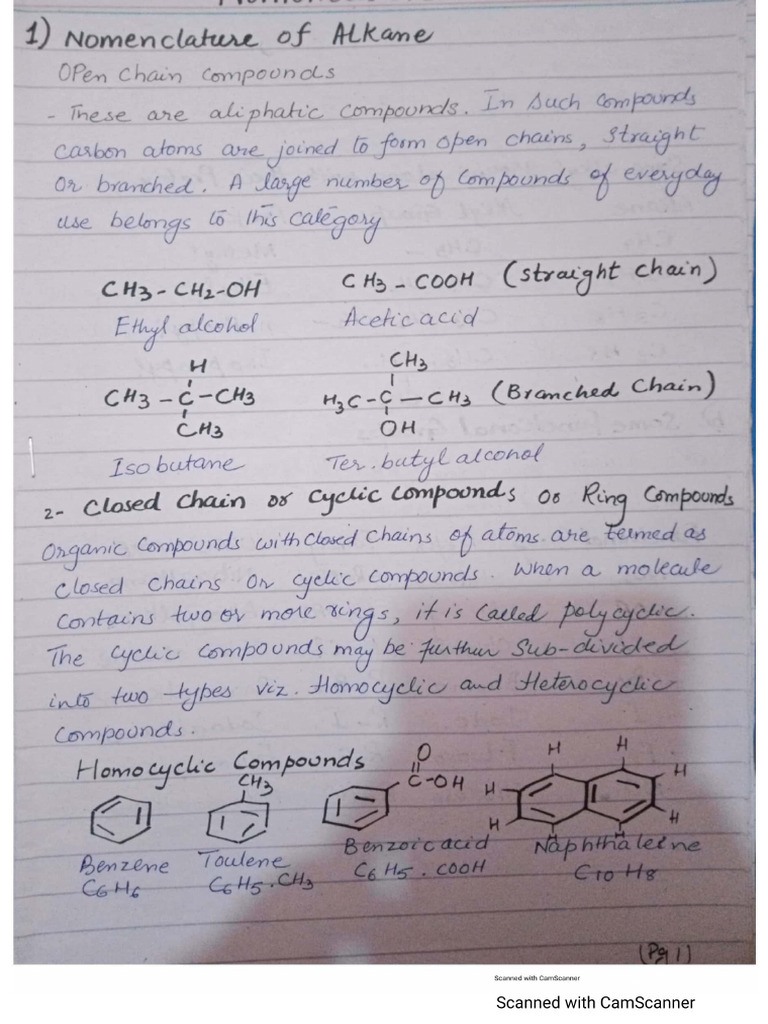 1) Nomenclature of Alkane
Open Chain Compounds
- These are aliphatic compounds. In such compounds
carbon atoms are joined to form open chains, straight
or branched. A large number of compounds of everyday
use belongs to this category
CH3-CH2-OH CH3-COOH (straight chain)
Ethyl alcohol Acetic acid
H CH3
CH3-C-CH3 H3C-C-CH3 (Branched Chain)
CH3 OH
Isobutane Ter. butyl alcohol
2- Closed Chain or cyclic compounds or Ring Compounds
Organic compounds with closed chains of atoms are termed as
closed chains or cyclic compounds. When a molecule
contains two or more rings, it is called polycyclic.
The cyclic compounds may be further sub-divided
into two types viz. Homocyclic and Heterocyclic
compounds.
Homocyclic Compounds
CH3 O H H
C-OH H H
H H
H H
Benzene Toulene Benzoic acid Naphthaleine
C6H6 C6H5.CH3 C6H5.COOH C10H8
(Pg 1)
Scanned with CamScanner
Scanned with CamScanner